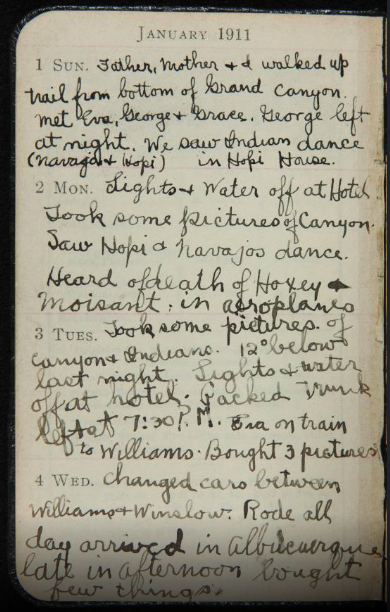 JANUARY 1911
1 SUN. Father, Mother + I walked up
trail from bottom of Grand Canyon.
met Eva, George + Grace. George left
at night. We saw Indian dance
(Navajo + Hopi) in Hopi House.
2 MON. Lights + Water off at Hotel
Took some pictures of Canyon.
Saw Hopi + Navajos dance.
Heard of death of Hoxey +
Moisant, in aeroplanes
3 TUES. Took some pictures of
Canyon + Indians. 12° below
last night. Lights + water
off at hotel. Packed Trunk
left at 7:30 P.M. Eva on train
to Williams. Bought 3 pictures
4 WED. Changed cars between
Williams + Winslow. Rode all
day arrived in Albuquerque
late in afternoon bought
few things.